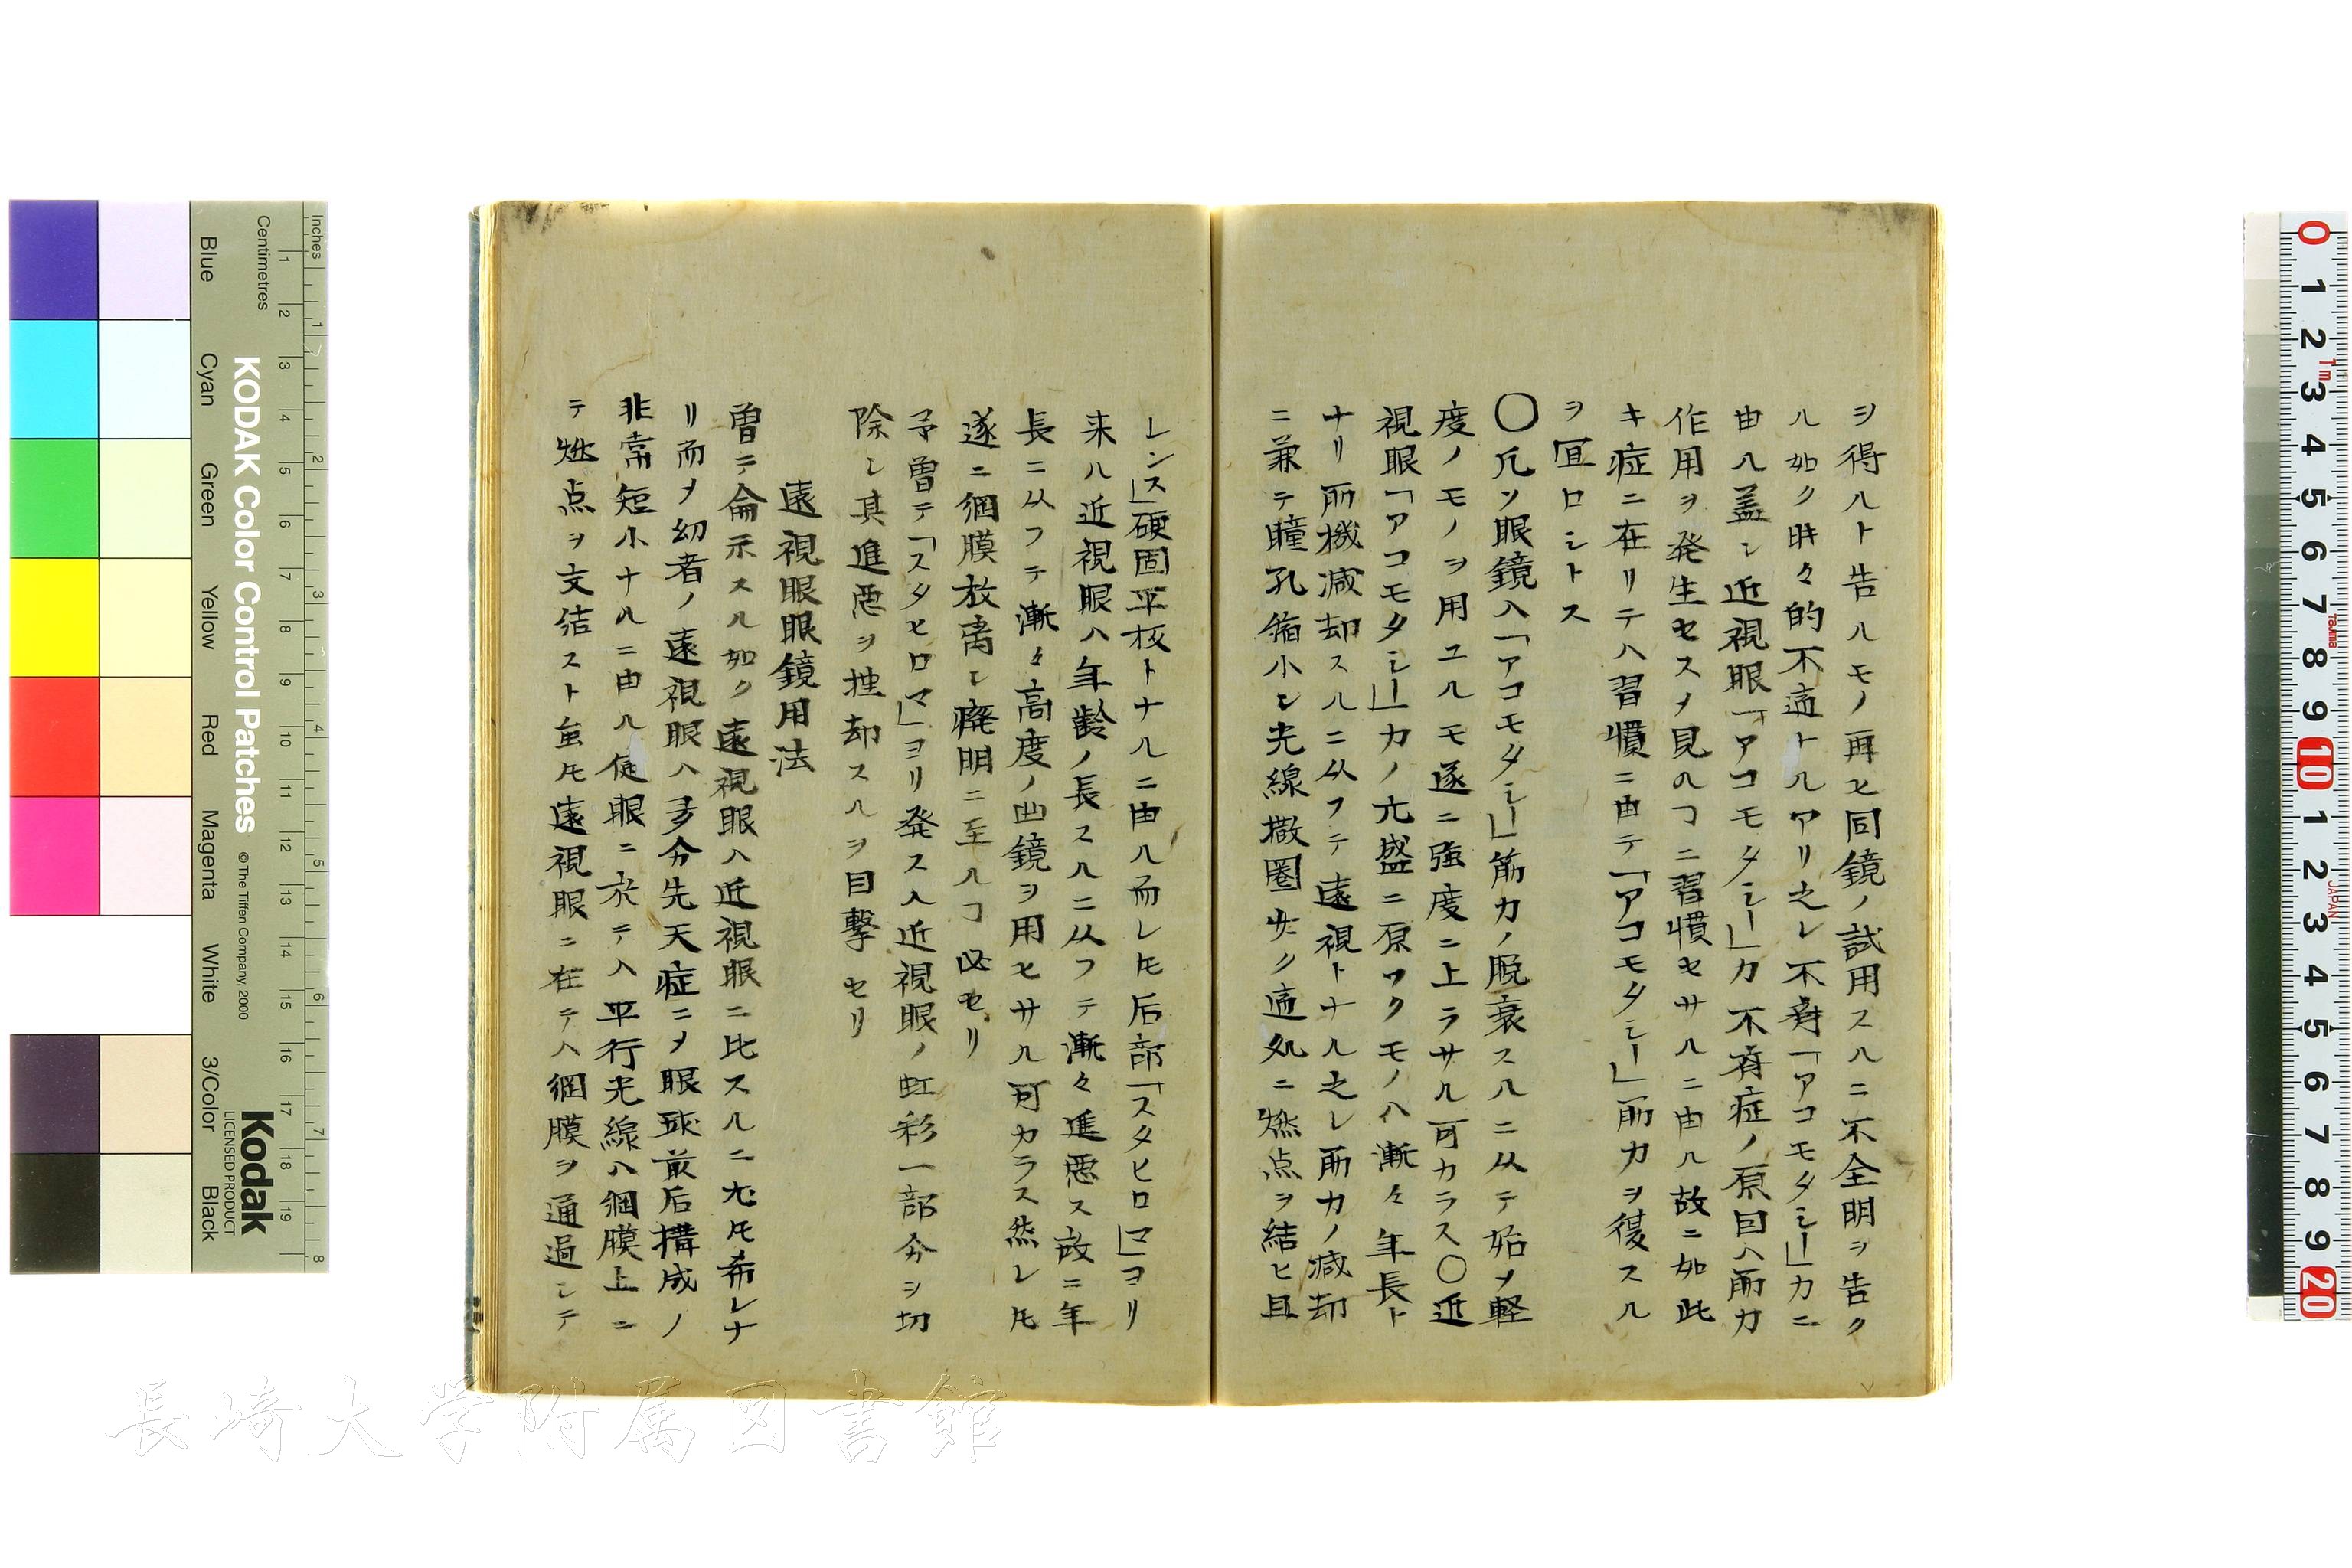 ヲ得ルト告ルモノ再ヒ同鏡ノ試用スルニ不全明ヲ告ク
ル如ク時々的不適トルアリ之レ不斉「アコモタシー」力ニ
由ル蓋シ近視眼「アコモタシー」力不斉症ノ原因ハ筋力
作用ヲ発生セスメ見ルコニ習慣セサルニ由ル故ニ如此
キ症ニ在リテハ習慣ニ由テ「アコモタシー」筋力ヲ復スル
ヲ冝ロシトス
〇凡ソ眼鏡ハ「アコモタシー」筋力ノ脱衰スルニ从テ始メ軽
度ノモノヲ用ユルモ遂ニ強度ニ上ラサル可カラス〇近
視眼「アコモタシー」力ノ亢盛ニ原ツクモノハ漸々年長ト
ナリ筋機減却スルニ从フテ遠視トナル之レ筋力ノ減却
ニ兼テ瞳孔縮小シ光線撒圏少ク適処ニ燃点ヲ結ヒ且
レンス」硬固平板トナルニ由ル而レ𪜈后部「スタヒロマ」ヨリ
来ル近視眼ハ年齢ノ長スルニ从フテ漸々進悪ス故ニ年
長ニ从フテ漸々高度ノ凹鏡ヲ用ヒサル可カラス然レ𪜈
遂ニ網膜放离シ廃明ニ至ルコ必セリ
予曽テ「スタヒロマ」ヨリ発スル近視眼ノ虹彩一部分ヲ切
除シ其進悪ヲ挫却スルヲ目撃セリ
遠視眼眼鏡用法
曽テ侖示スル如ク遠視眼ハ近視眼ニ比スルニ尤𪜈希レナ
リ而メ幼者ノ遠視眼ハ多分先天症ニメ眼球前后構成ノ
非常短小ナルニ由ル徤眼ニ於テハ平行光線ハ網膜上ニ
テ燃点ヲ交結スト虽𪜈遠視眼ニ在テハ網膜ヲ通過シテ
Inches
Centimetres
KODAK Color Control Patches
©The Tiffen Company, 2000
Kodak
LICENSED PRODUCT
Blue
Cyan
Green
Yellow
Red
Magenta
White
3/Color
Black
1 2 3 4 5 6 7 8 9 10 11 12 13 14 15 16 17 18 19
1 2 3 4 5 6 7 8
0 1 2 3 4 5 6 7 8 9 10 1 2 3 4 5 6 7 8 9 20
1m
Tajima
JAPAN
長崎大学附属図書館